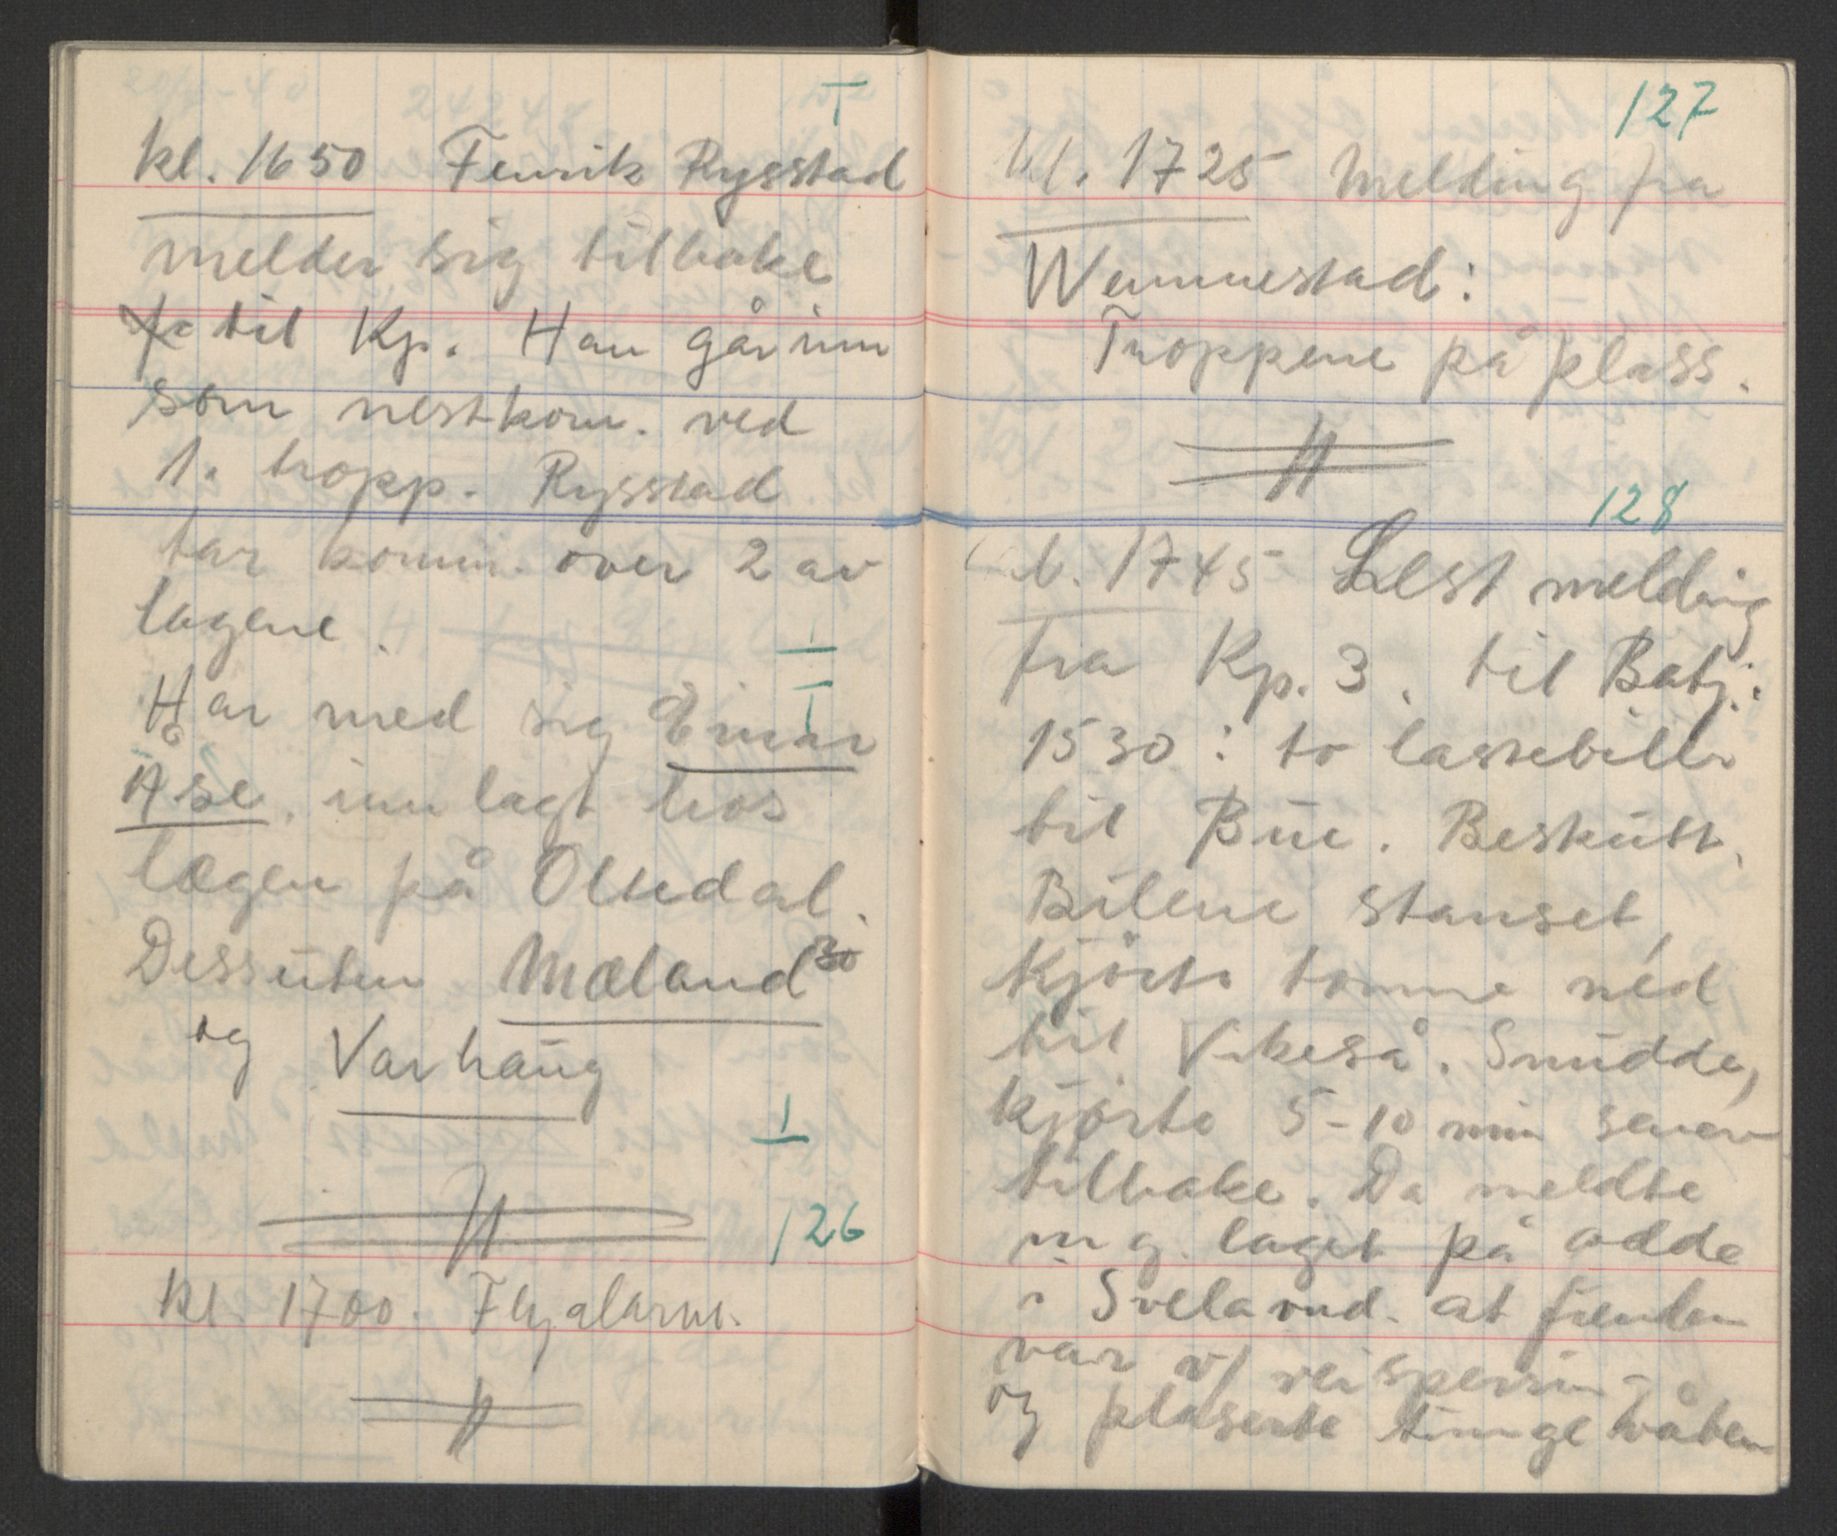 kl. 1650 Fenrik Rysstad
melder sig tilbake
til Kp. Han går inn
som nestkom. ved
1. tropp. Rysstad
tar komm. over 2 av
lagene.
Har med sig Einar
Åse, innlagt hos
lægen på Oltedal.
Dessuten Mæland
og Varhaug
126
kl. 1700. Flyalarm.
127
kl. 1725 Melding fra
Wennestad:
Troppene på plass.
128
kl. 1745 Lest melding
fra Kp. 3. til Batj.:
1530: to lastebiler
til Bue. Beskutt.
Bilene stanset,
kjørte tomme ned
til Vikeså. Snudde,
kjørte 5-10 min senere
tilbake. Da meldte
mg. laget på odde
i Svelavnd. at fienden
var v/ veisperring
og plaserte tunge våben